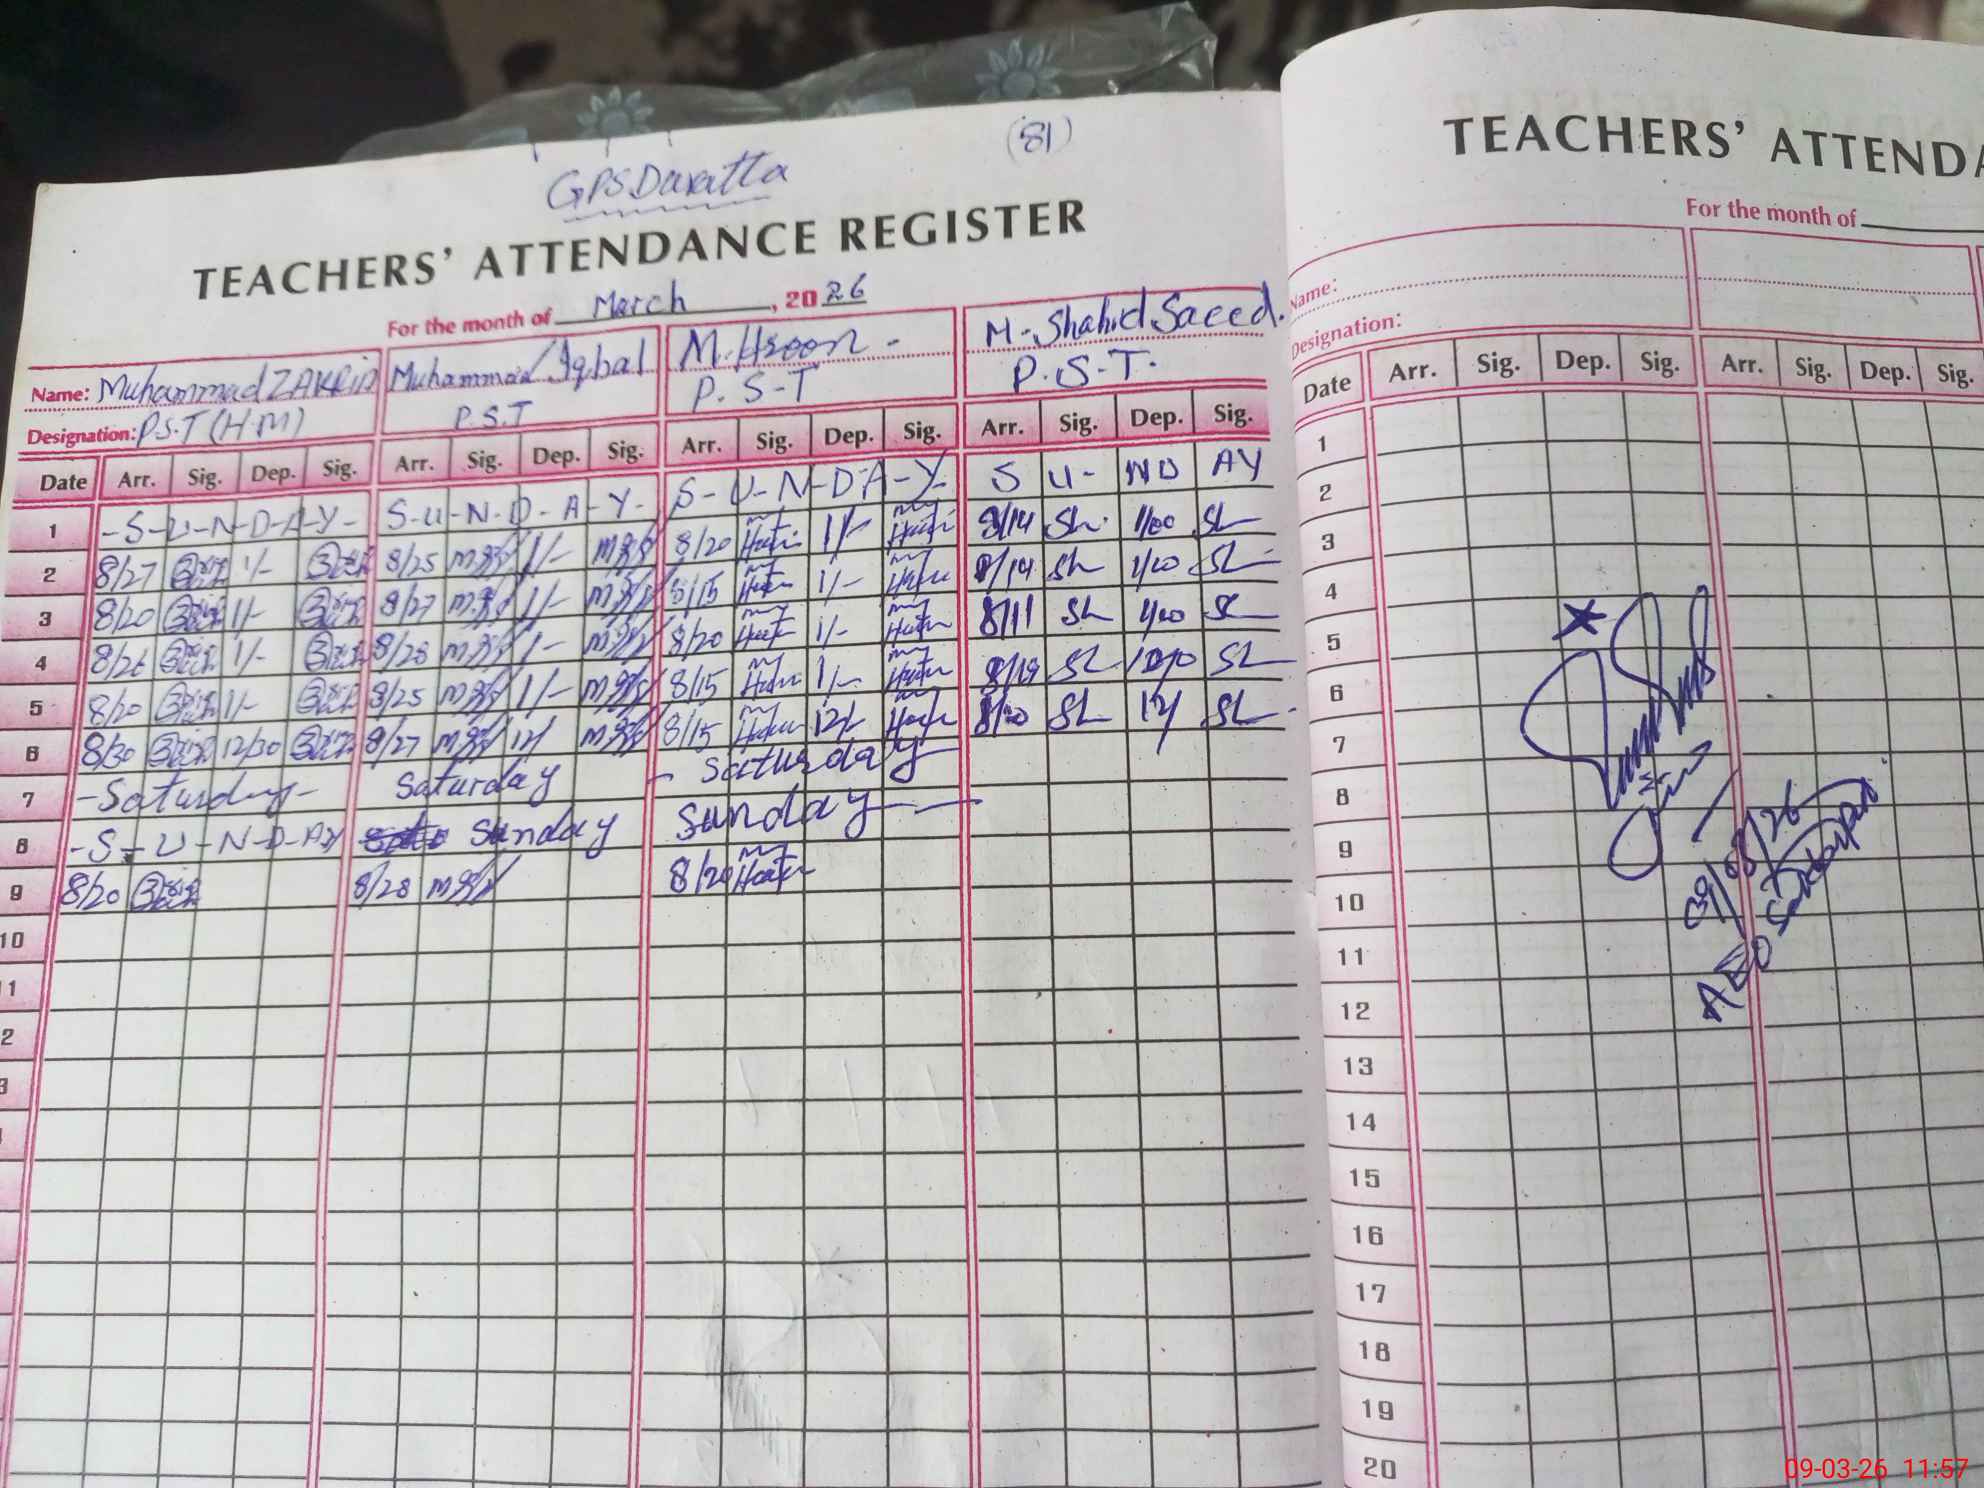 (81)
GPS Daratta
TEACHERS' ATTENDANCE REGISTER
For the month of March, 2026
Name: Muhammad ZAKRIA Muhammad Iqbal M. Hroon - M. Shahid Saeed.
Designation: P.S.T (H.M) P.S.T P.S-T P.S-T.
Date Arr. Sig. Dep. Sig. Arr. Sig. Dep. Sig. Arr. Sig. Dep. Sig. Arr. Sig. Dep. Sig.
1 -S-U-N-D-A-Y- S-U-N-D-A-Y- S-U-N-D-A-Y- S U- ND AY
2 8/27 1/- 8/25 1/- 8/20 1/- 8/14 Sh. 1/00 SL
3 8/20 1/- 8/27 1/- 8/15 1/- 8/14 Sh 1/00 SL
4 8/26 1/- 8/28 1/- 8/20 1/- 8/11 Sh 1/00 SL
5 8/20 1/- 8/25 1/- 8/15 1/- 8/19 SL SL
6 8/30 12/30 8/27 12/ 8/15 12/- 8/20 SL 12/ SL
7 -Saturday- Saturday - Saturday
8 -S-U-N-D-AY Sunday Sunday
9 8/20 8/28 8/20
10
11
12
TEACHERS' ATTENDA
For the month of
Name:
Designation:
Date Arr. Sig. Dep. Sig. Arr. Sig. Dep. Sig.
1
2
3
4
5
6
7
8
9
10
11
12
13
14
15
16
17
18
19
20
09/03/26
AEO
09-03-26 11:57